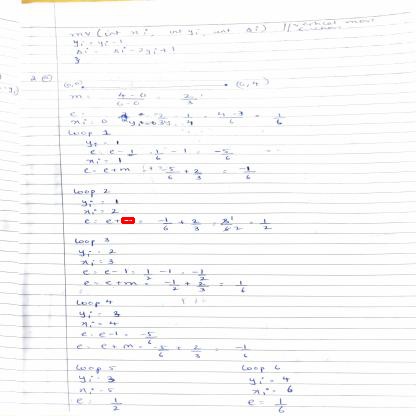 mv (int xi, int yi, int Δi) //vertical move
yi = yi - 1
Δi = Δi - 2yi + 1
}
2 (a) (0,0) (6,4)
m = 4-0/6-0 = 2/3
e = 2/3 - 1/2 = 4-3/6 = 1/6
xi = 0 yi = 0
Loop 1
yi = 1
e = e - 1 = 1/6 - 1 = -5/6
xi = 1
e = e + m = -5/6 + 2/3 = -1/6
Loop 2
yi = 1
xi = 2
e = e + = -1/6 + 2/3 = 3/6 = 1/2
Loop 3
yi = 2
xi = 3
e = e - 1 = 1/2 - 1 = -1/2
e = e + m = -1/2 + 2/3 = 1/6
Loop 4
yi = 3
xi = 4
e = e - 1 = -5/6
e = e + m = -5/6 + 2/3 = -1/6
Loop 5 Loop 6
yi = 3 yi = 4
xi = 5 xi = 6
e = 1/2 e = 1/6